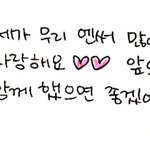 제가 우리 엔써 많이
사랑해요 ♡♡ 앞으
함께 했으면 좋겠어